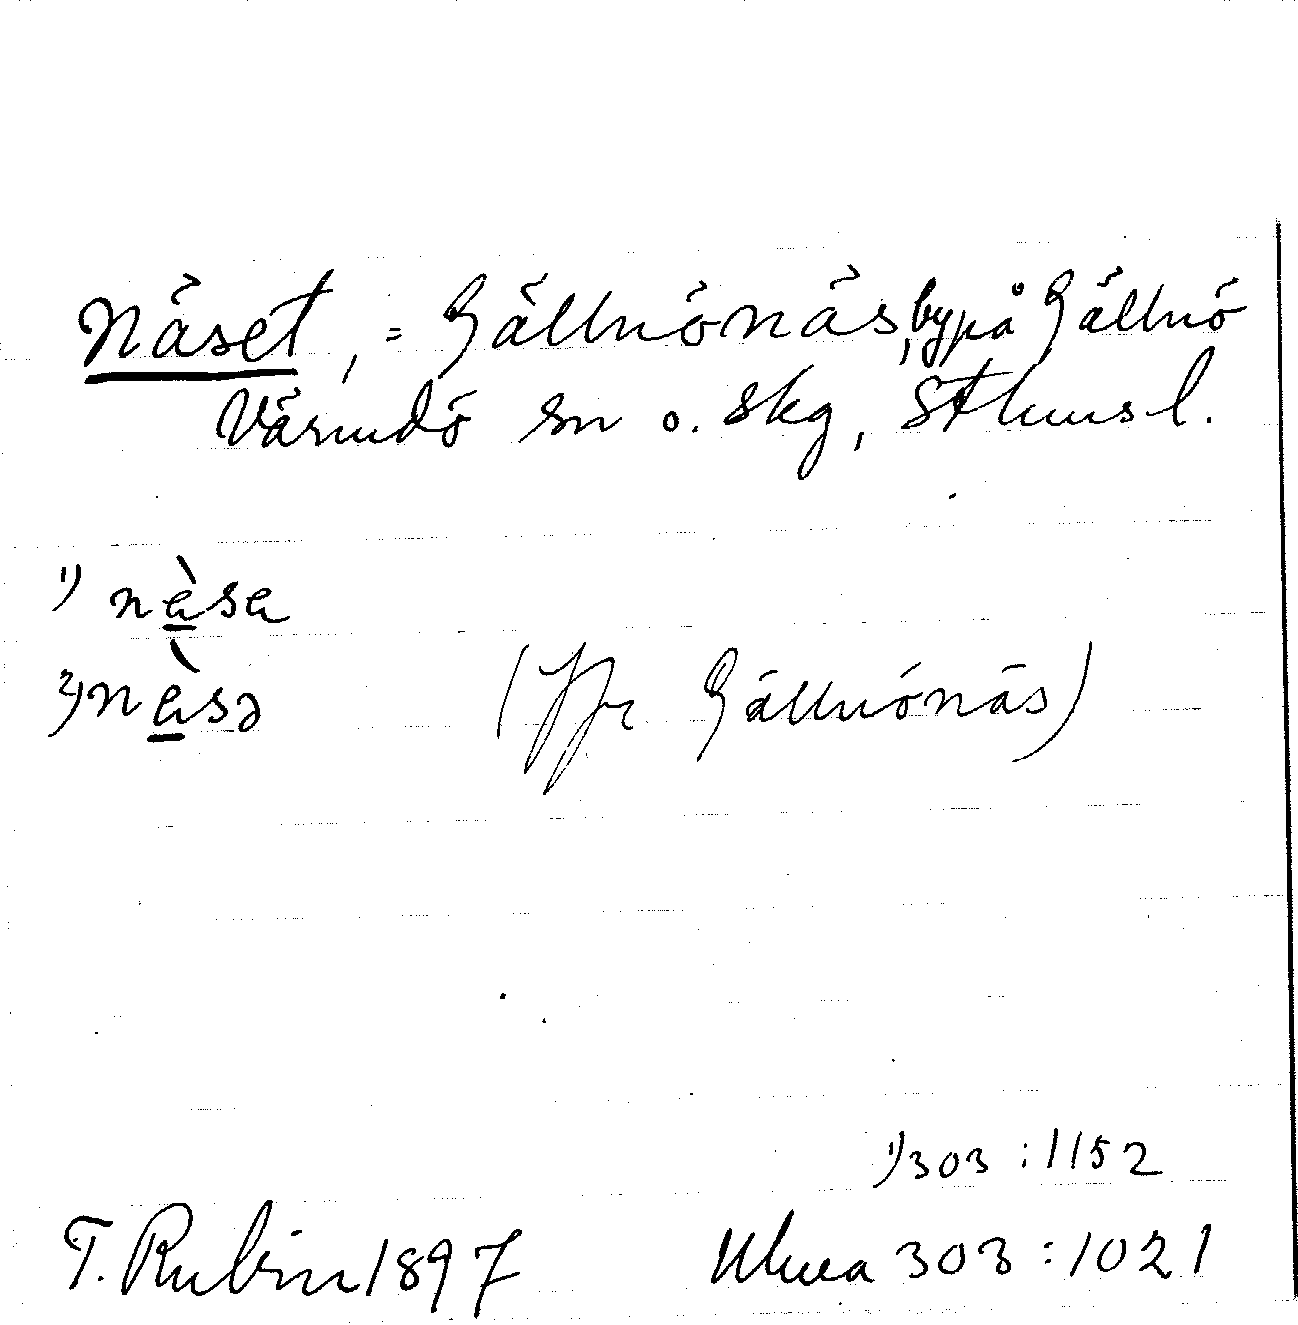 Näset, = Gällnönäs, by på Gällnö
Värmdö sn o. skg, Sthms l.
1) nèsa
2) nèsə (Jfr Gällnönäs)
1) 303:1152
T. Rubin 1897 Ulma 303:1021